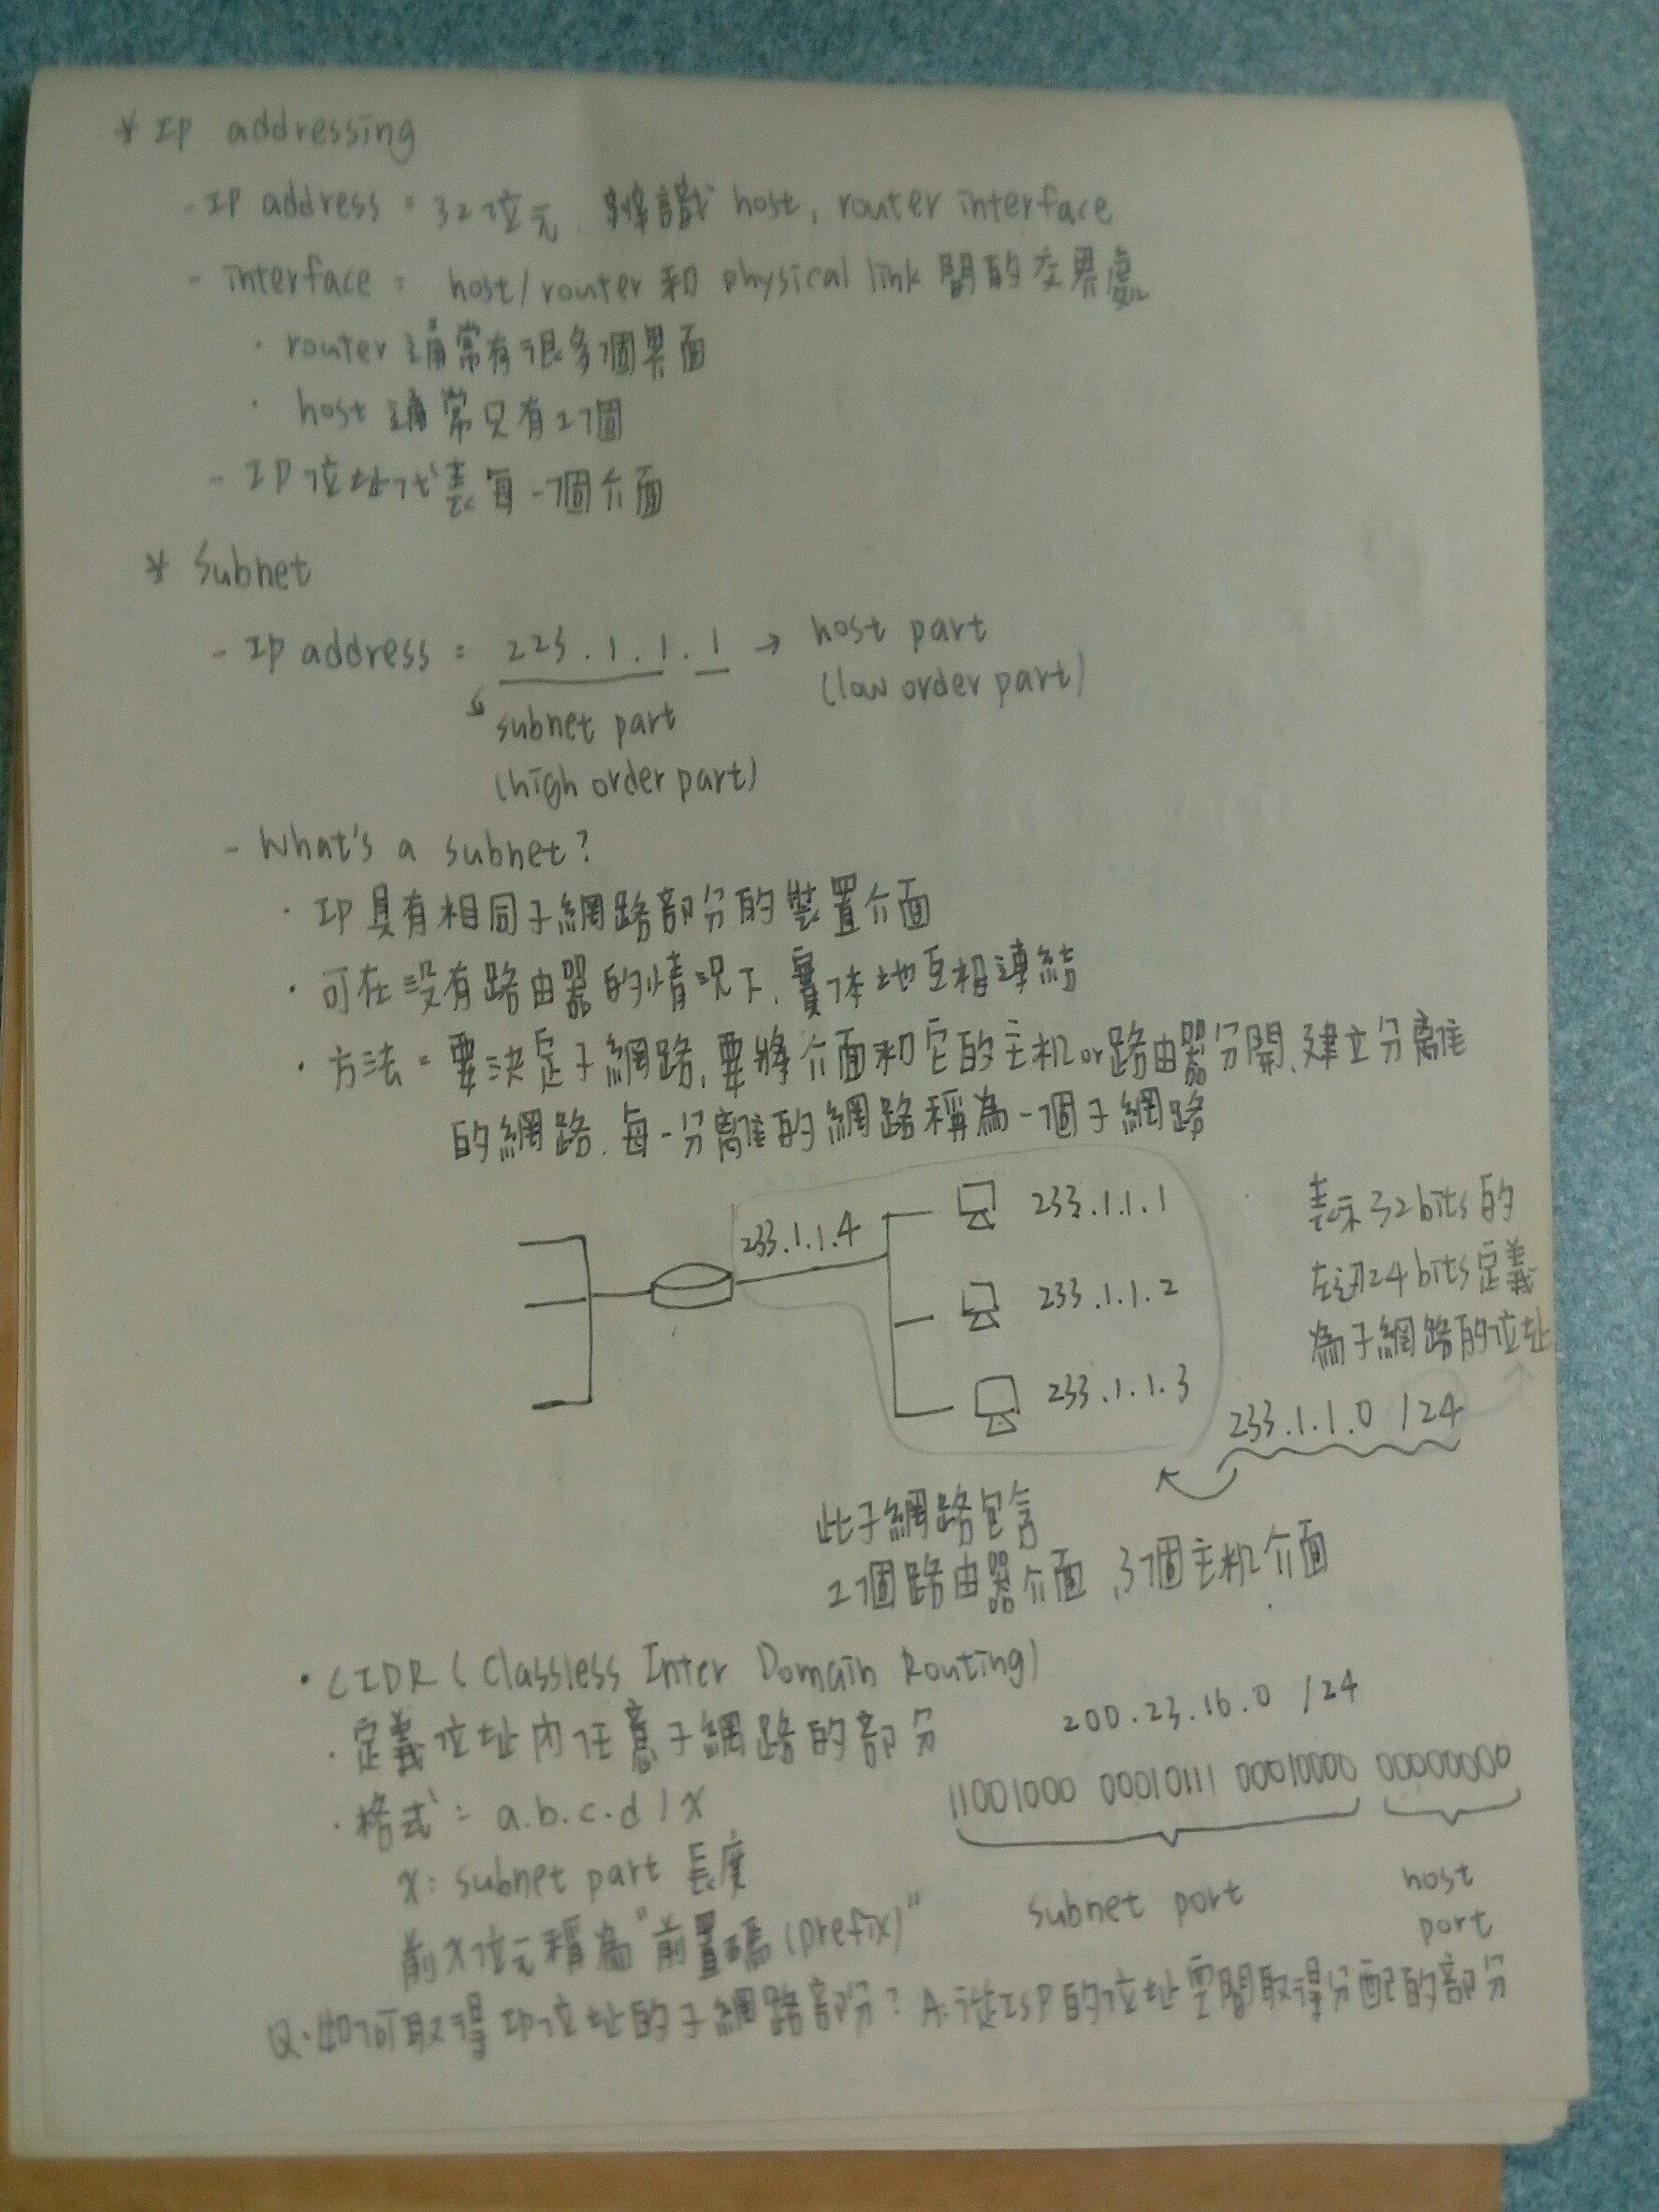 * IP addressing
- IP address = 32位元, 辨識 host, router interface
- interface = host/router 和 physical link 間的交界處
· router 通常有很多個界面
· host 通常只有1個
- IP位址代表每一個介面
* Subnet
- IP address = 223.1.1.1 → host part
(low order part)
subnet part
(high order part)
- What's a subnet?
· IP具有相同子網路部分的裝置介面
· 可在沒有路由器的情況下, 實体地互相連結
· 方法 = 要決定子網路, 要將介面和它的主机or路由器分開, 建立分離
的網路, 每一分離的網路稱為一個子網路
233.1.1.4
233.1.1.1
233.1.1.2
233.1.1.3
表示32bits的
左边24bits定義
為子網路的位址
233.1.1.0 /24
此子網路包含
1個路由器介面, 3個主机介面
· CIDR (Classless Inter Domain Routing)
· 定義位址內任意子網路的部分
· 格式 = a.b.c.d/x
x: subnet part 長度
前x位元稱為"前置碼(prefix)"
200.23.16.0 /24
11001000 00010111 00010000 00000000
subnet port
host
port
Q:如何取得IP位址的子網路部分? A:從ISP的位址空間取得分配的部分